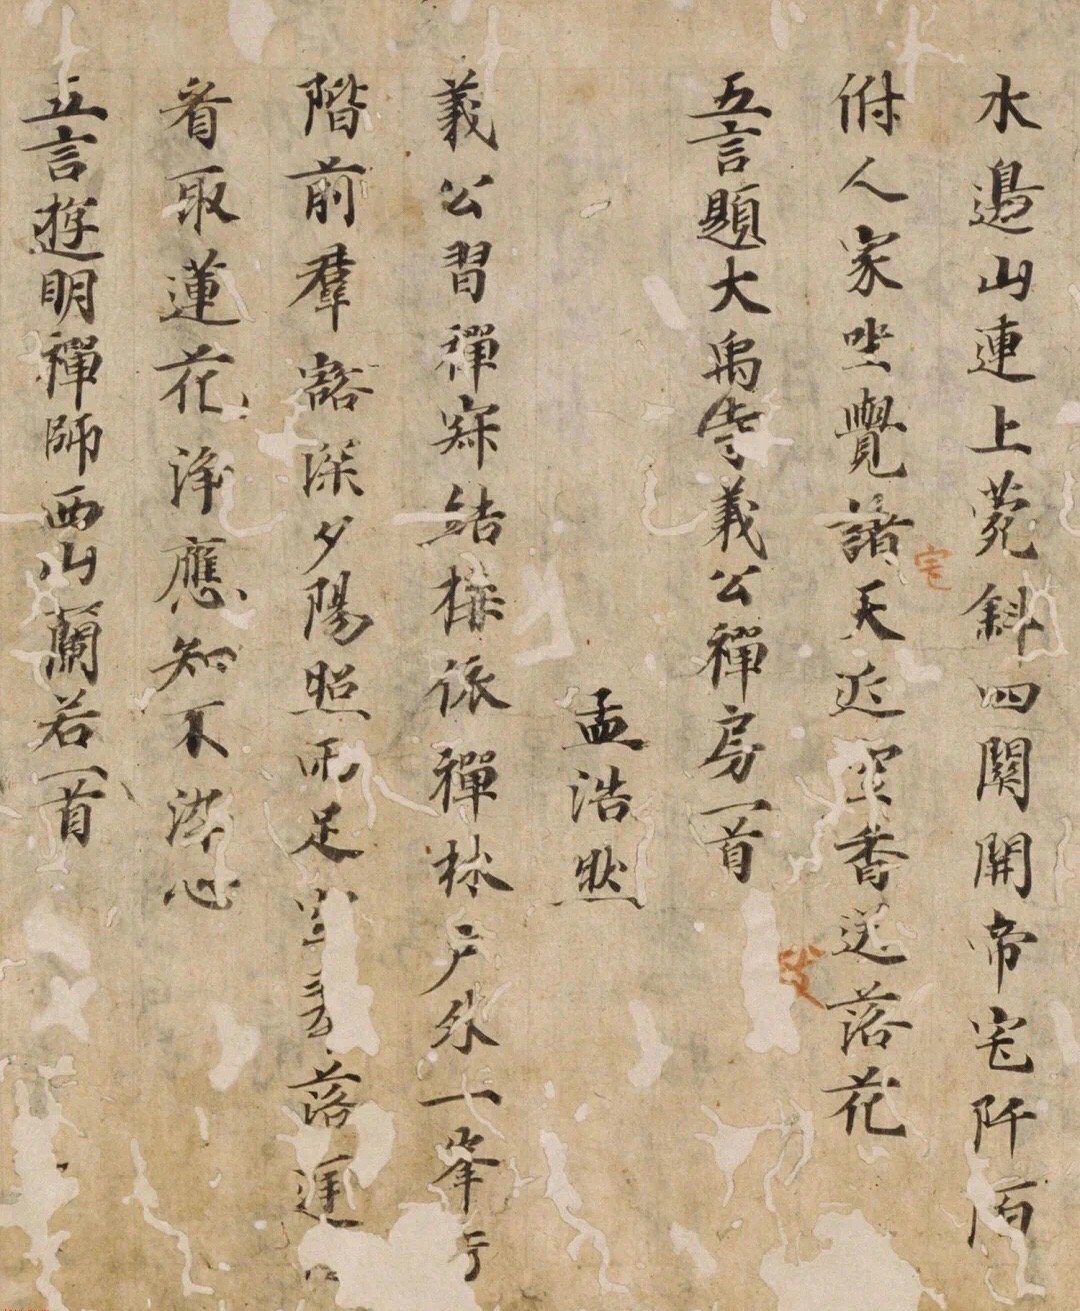 水邊山連上菀斜四關開帝宅阡陌
俯人家坐覺諸天近空香送落花
宅
五言題大禹寺義公禪房一首
孟浩然
義公習禪寂結構依禪林戶外一峯秀
階前羣豁深夕陽照雨足空翠落庭
看取蓮花淨應知不染心
五言遊明禪師西山蘭若一首